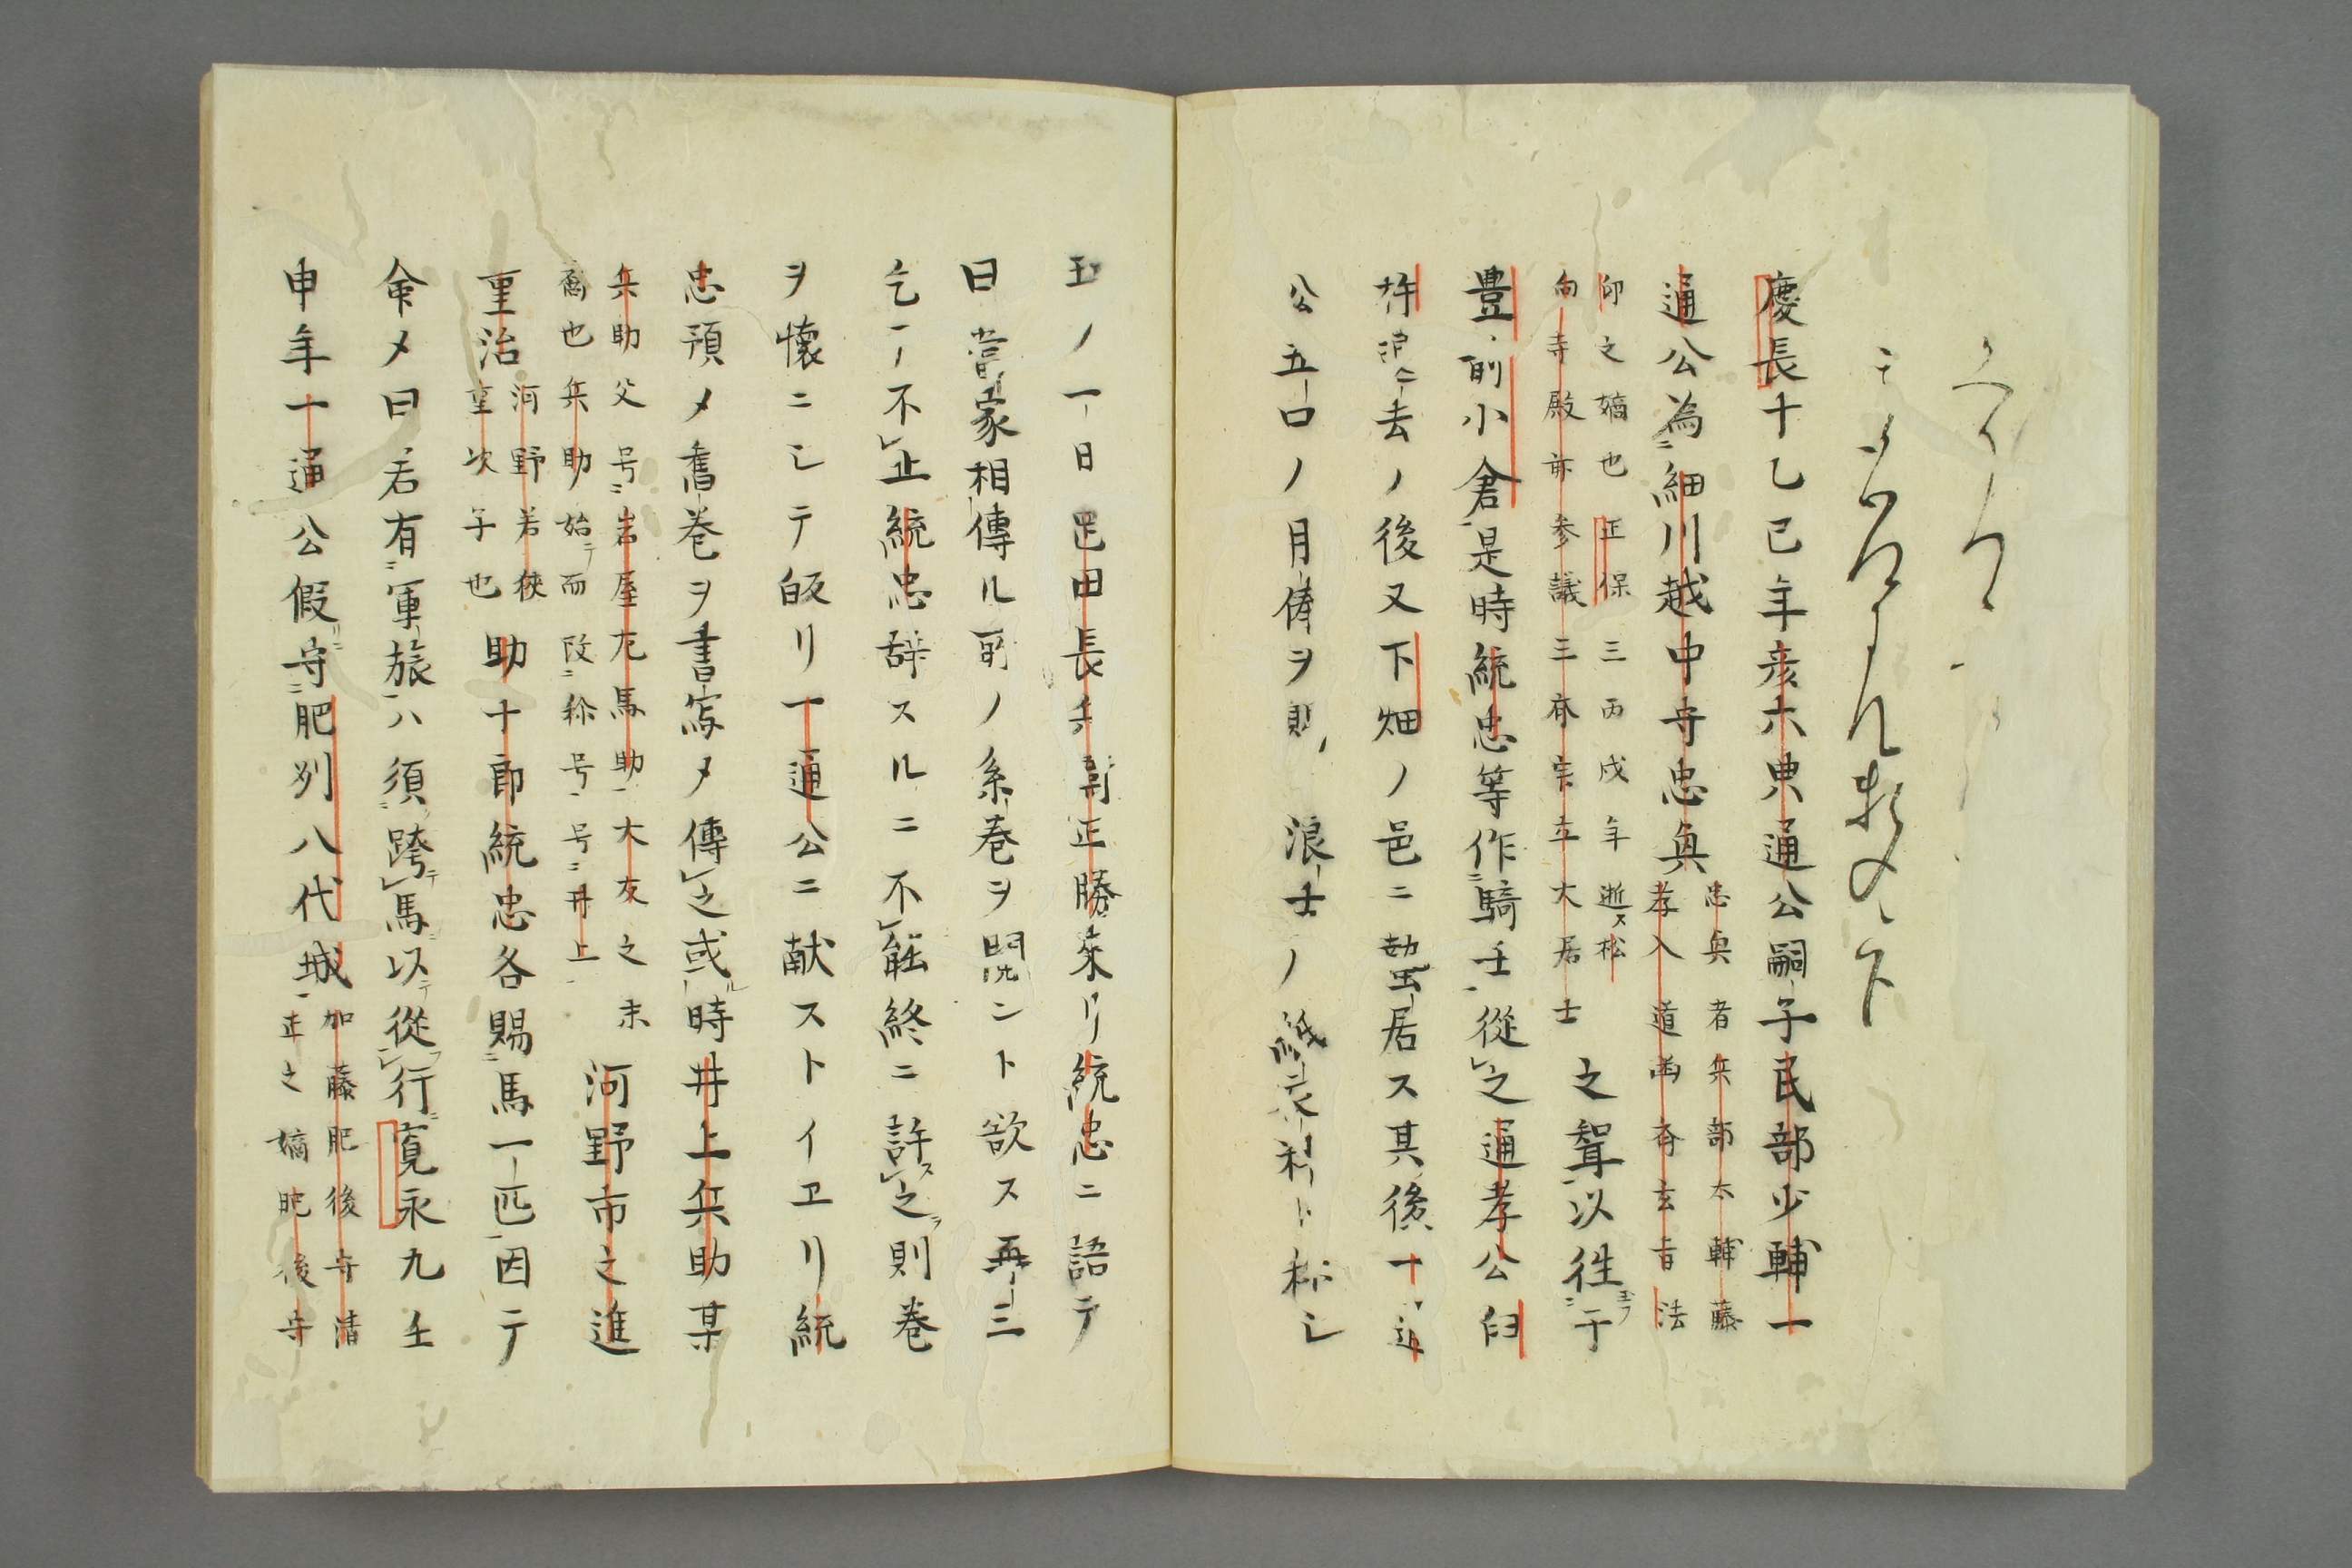 慶長十乙巳年彦六典通公嗣子民部少輔一
通公為ニ細川越中守忠興
忠興者兵部太輔藤
孝入道幽斎玄旨法
印之嫡也正保三丙戌年逝ス松
向寺殿前参議三斎宗立大居士
之聟以往玉フニ于
豊前小倉是時統忠等作ニ騎士従レ之通孝公臼
杵ニ去ノ後又下畑ノ邑ニ蟄居ス其後一通
公五口ノ月俸ヲ賜 浪士ノ
玉ノ一日
田長兵衛正勝来リ統忠ニ語テ
曰當家相傳ル所ノ系巻ヲ閲ント欲ス再三
乞一不レ止統忠辞スルニ不レ能終ニ許スレ之ヲ則巻
ヲ懐ニシテ皈リ一通公ニ献ストイヱリ統
忠預メ舊巻ヲ書寫メ傳レ之或ル時井上兵助某
兵助父号ニ岩屋左馬助大友之末
裔也兵助始テ而改ニ称号号ニ井上
河野市之進
重治
河野若狹
重次子也
助十郎統忠各賜ニ馬一匹因テ
命メ曰若有ニ軍旅ハ須跨テレ馬以テ従フレ行ニ寛永九壬
申年一通公假リニ守ニ肥列八代城
加藤肥後守清
正之嫡肥後守